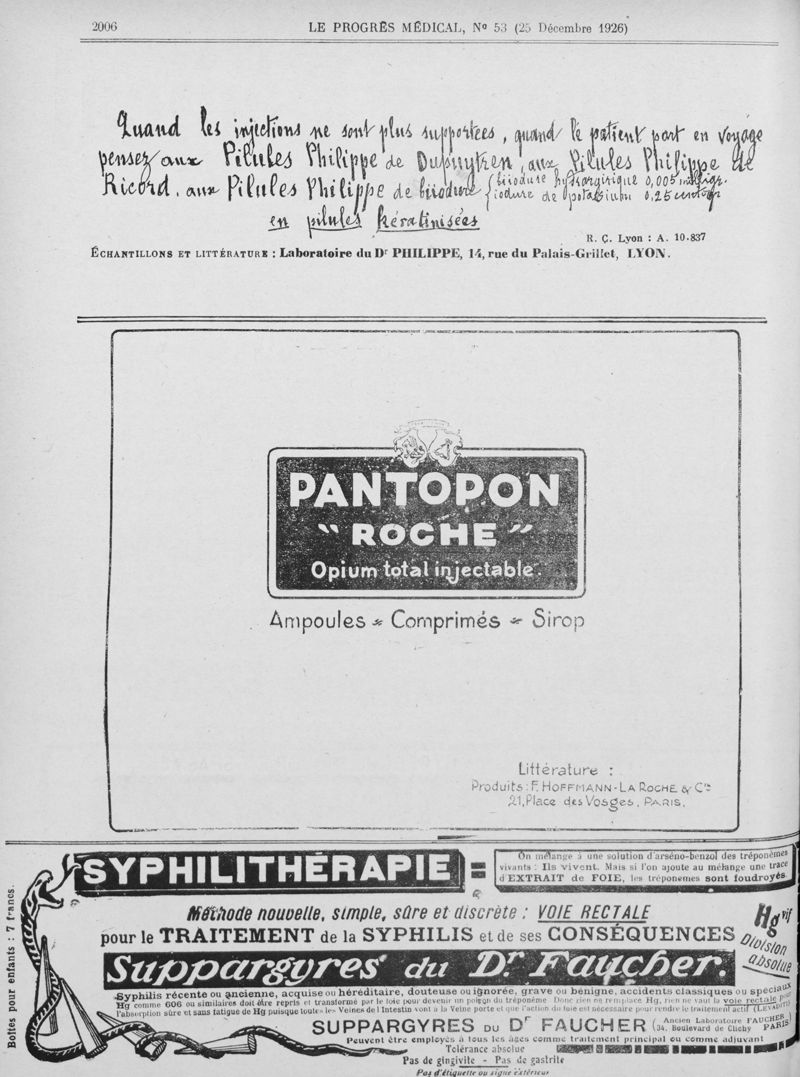 2006
LE PROGRÈS MÉDICAL, No 53 (25 Décembre 1926)
Quand les injections ne sont plus supportées, quand le patient part en voyage
pensez aux Pilules Philippe de Dupuytren, aux Pilules Philippe de
Ricord, aux Pilules Philippe de biiodure { biiodure hydrargirique 0,005 milligr.
iodure de potassium 0,25 centigr
en pilules kératinisées
R. C. Lyon : A. 10.837
ÉCHANTILLONS ET LITTÉRATURE : Laboratoire du Dr PHILIPPE, 14, rue du Palais-Grillet, LYON.
PANTOPON
"ROCHE"
Opium total injectable.
Ampoules - Comprimés - Sirop
Littérature :
Produits: F. HOFFMANN-LA ROCHE & Cie
21, Place des Vosges, PARIS.
SYPHILITHÉRAPIE =
On mélange à une solution d'arséno-benzol des tréponèmes
vivants : Ils vivent. Mais si l'on ajoute au mélange une trace
d'EXTRAIT de FOIE, les tréponèmes sont foudroyés.
Méthode nouvelle, simple, sûre et discrète : VOIE RECTALE
pour le TRAITEMENT de la SYPHILIS et de ses CONSÉQUENCES
Hg vif
Division
absolue
Suppargyres du Dr Faucher.
Syphilis récente ou ancienne, acquise ou héréditaire, douteuse ou ignorée, grave ou bénigne, accidents classiques ou spéciaux
Hg comme 606 ou similaires doit être repris et transformé par le foie pour devenir un poison du tréponème Donc rien ne remplace Hg, rien ne vaut la voie rectale pour
l'absorption sûre et sans fatigue de Hg puisque toutes les Veines de l'Intestin vont à la Veine porte et que l'action du foie est nécessaire pour rendre le traitement actif (LEVADITI)
SUPPARGYRES DU Dr FAUCHER
Ancien Laboratoire FAUCHER,
(34, Boulevard de Clichy PARIS)
Peuvent être employés à tous les âges comme traitement principal ou comme adjuvant
Tolérance absolue
Pas de gingivite - Pas de gastrite
Pas d'étiquette ou signe extérieur
Boîtes pour enfants : 7 francs.